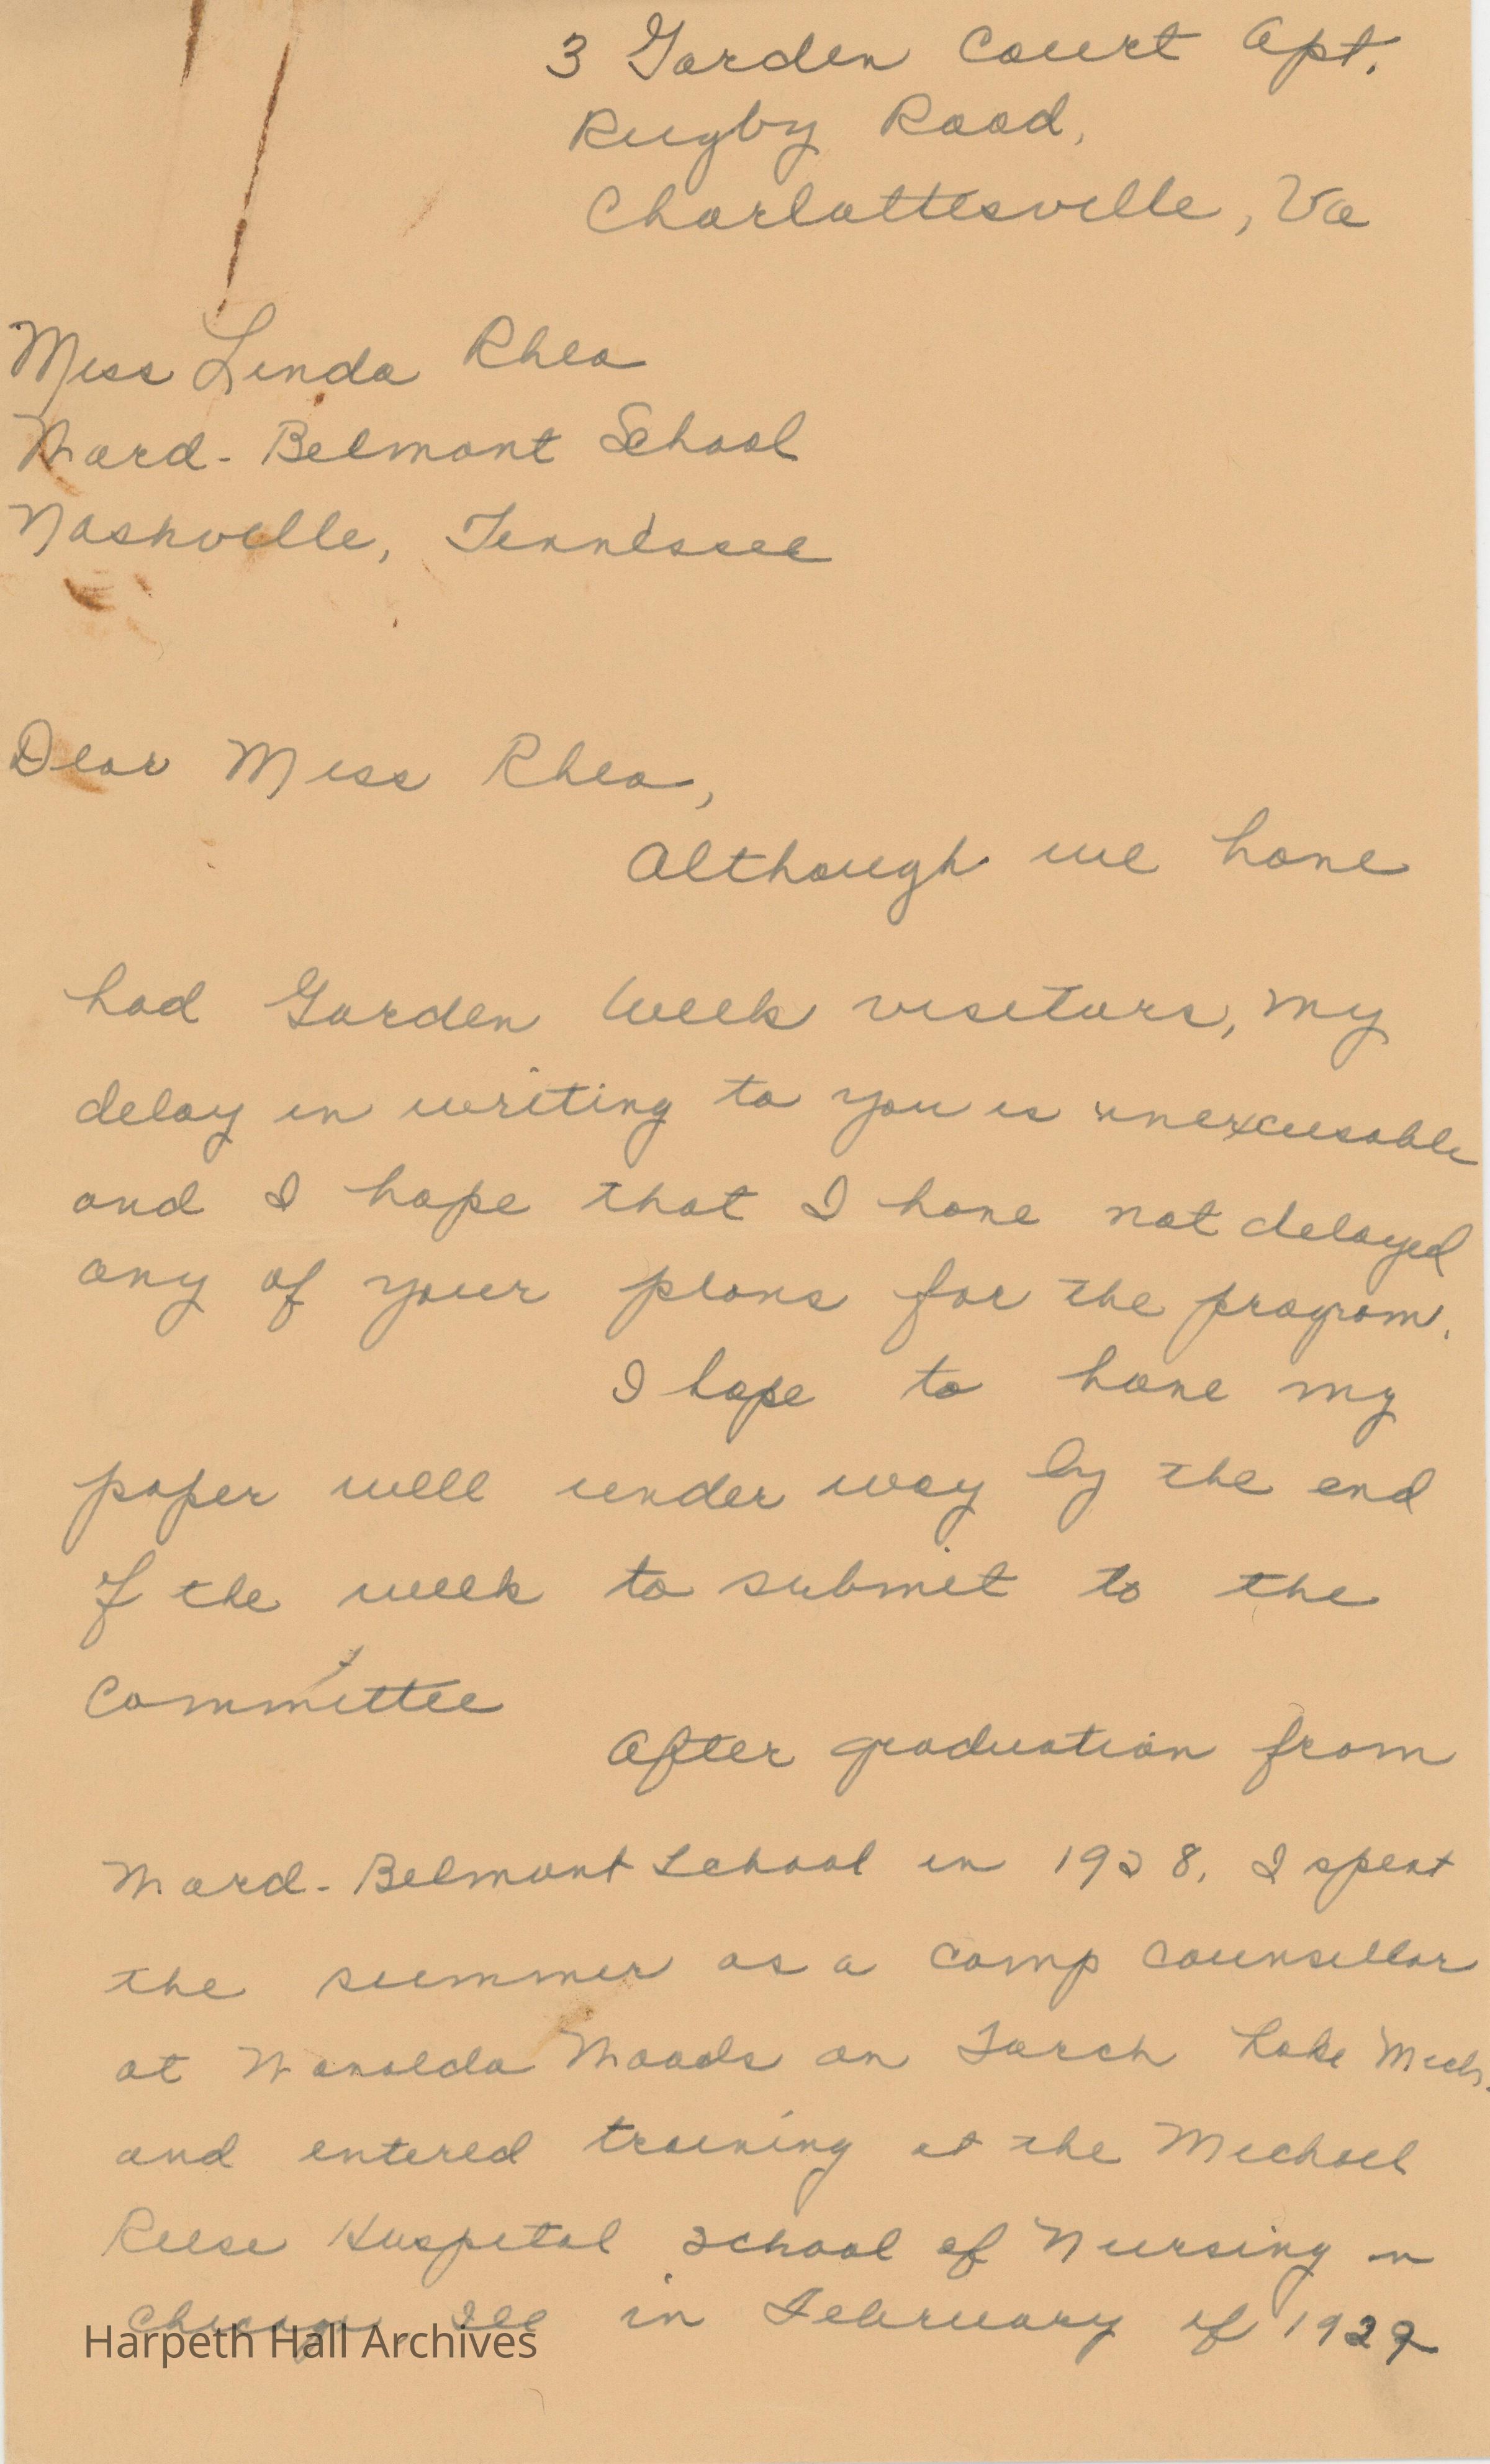 3 Garden Court Apt.
Rugby Road,
Charlottesville, Va
Miss Linda Rhea
Ward-Belmont School
Nashville, Tennessee
Dear Miss Rhea,
Although we have
had Garden Week visitors, my
delay in writing to you is unexcusable
and I hope that I have not delayed
any of your plans for the program.
I hope to have my
paper well under way by the end
of the week to submit to the
Committee
After graduation from
Ward-Belmont School in 1928, I spent
the summer as a camp counsellor
at Wanalda Woods on Torch Lake Mich.
and entered training at the Michael
Reese Hospital School of Nursing in
Chicago, Ill in February of 1929
Harpeth Hall Archives